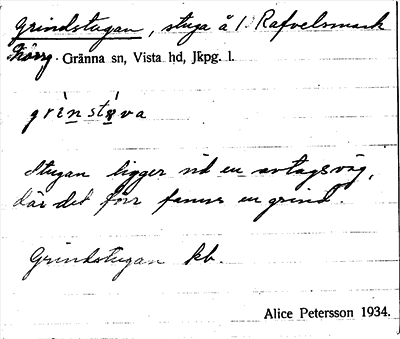 Grindstugan, stuga å 1 Rafvelsmark
Gränna sn, Vista hd, Jkpg. l.
grinstuva
Stugan ligger vid en avtagsväg,
där det förr fanns en grind.
Grindstugan kb.
Alice Petersson 1934.